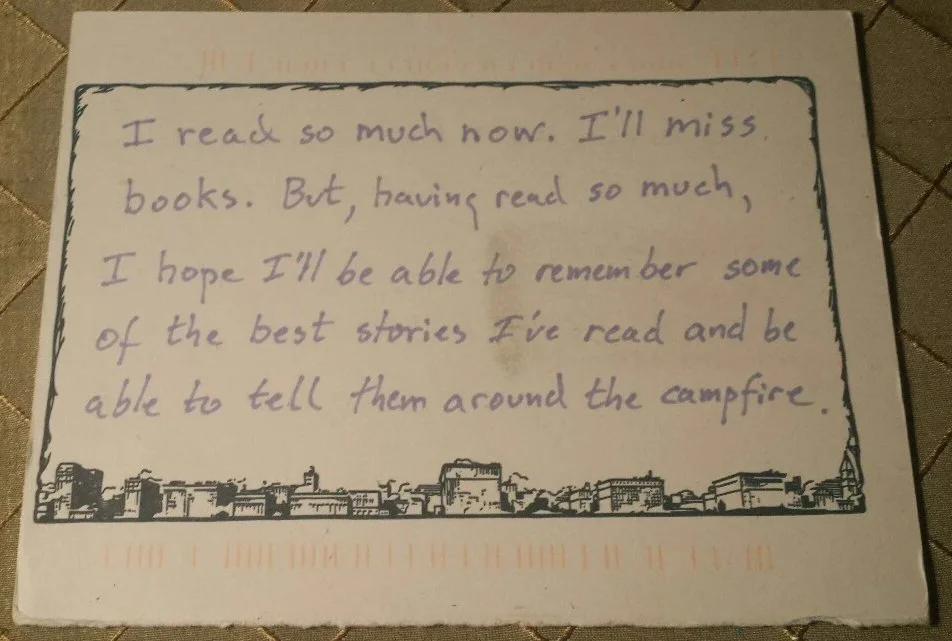 I read so much now. I'll miss
books. But, having read so much,
I hope I'll be able to remember some
of the best stories I've read and be
able to tell them around the campfire.